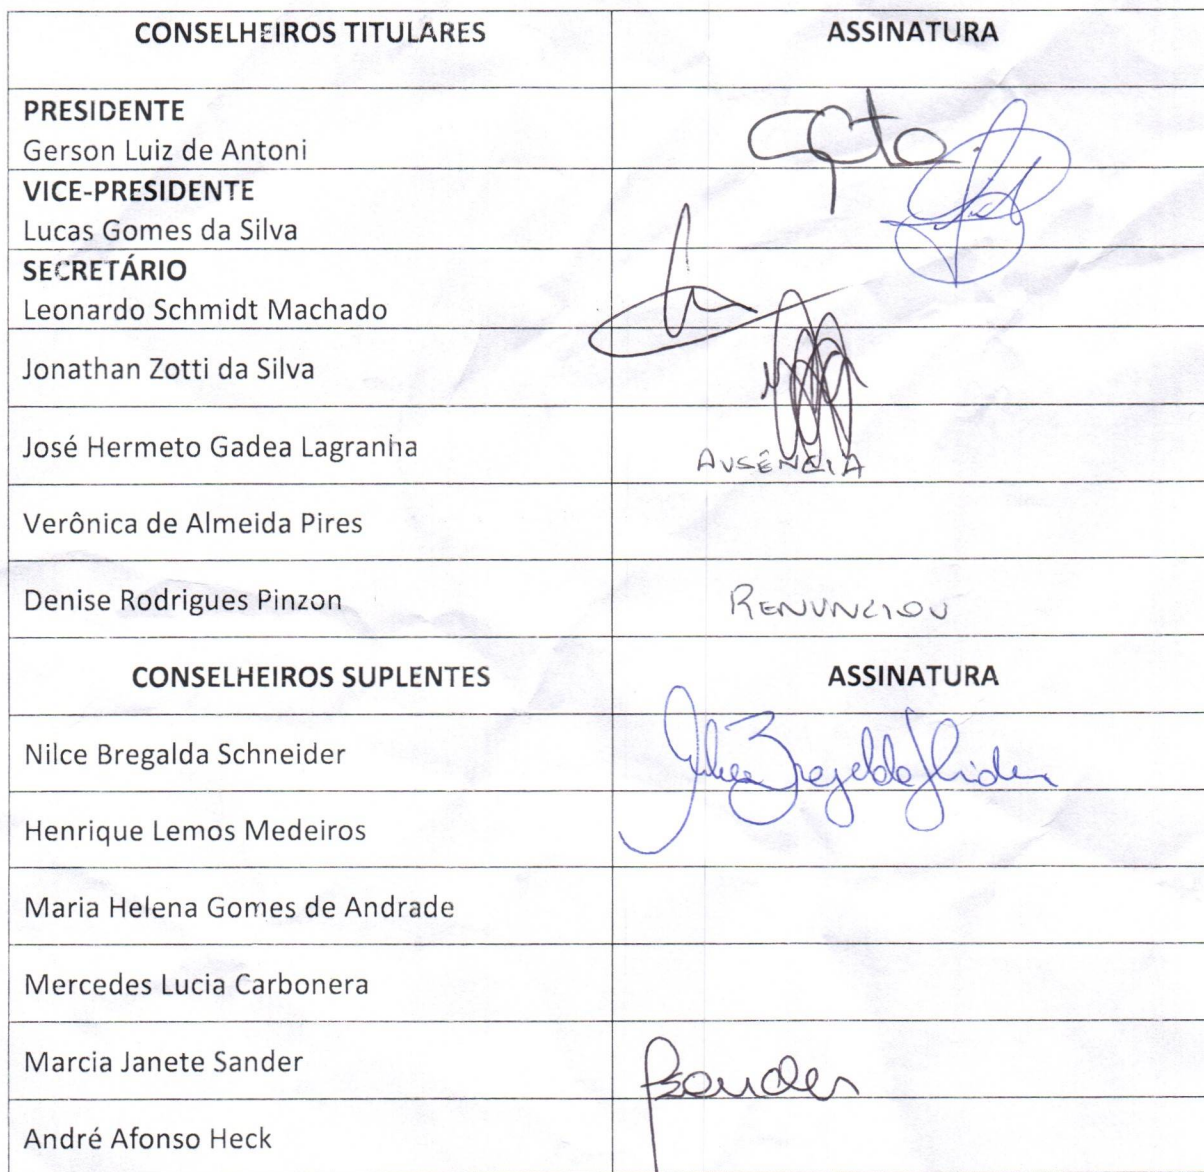 CONSELHEIROS TITULARES ASSINATURA
PRESIDENTE
Gerson Luiz de Antoni
VICE-PRESIDENTE
Lucas Gomes da Silva
SECRETÁRIO
Leonardo Schmidt Machado
Jonathan Zotti da Silva
José Hermeto Gadea Lagranha AUSÊNCIA
Verônica de Almeida Pires
Denise Rodrigues Pinzon RENUNCIOU
CONSELHEIROS SUPLENTES ASSINATURA
Nilce Bregalda Schneider
Henrique Lemos Medeiros
Maria Helena Gomes de Andrade
Mercedes Lucia Carbonera
Marcia Janete Sander
André Afonso Heck